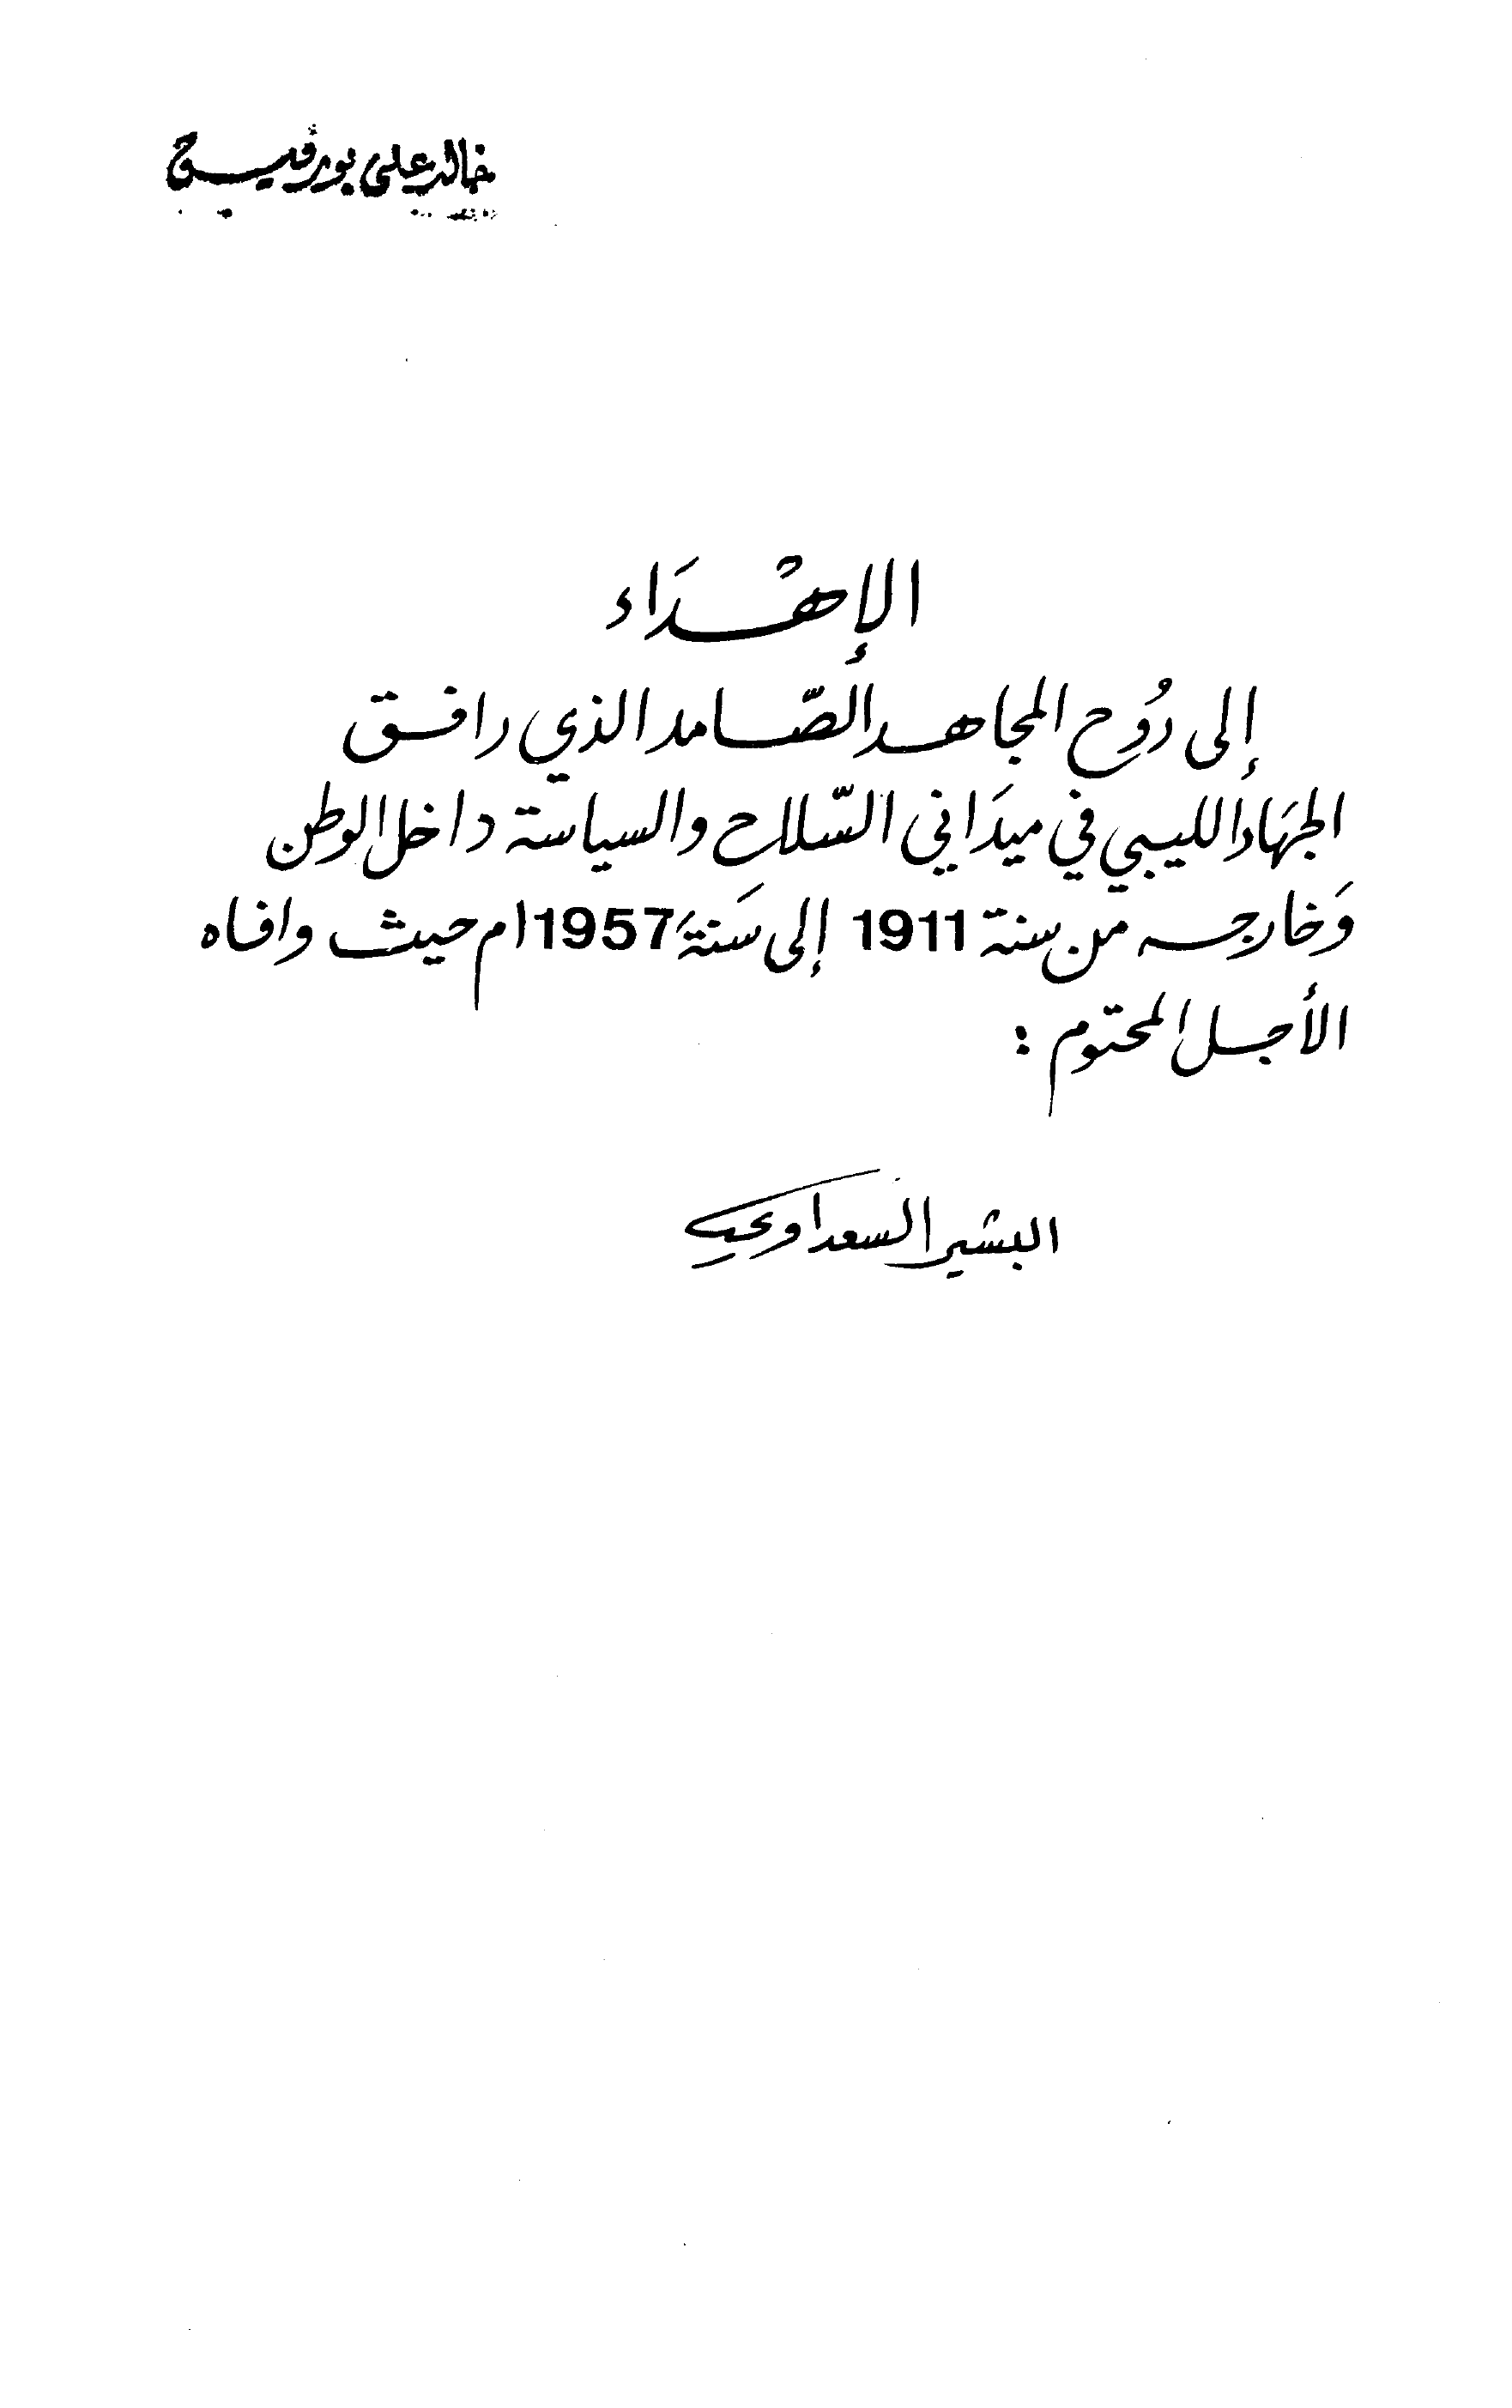 خالد علي بورقيبة
الإهْدَاء
إلى رُوح المجاهد الصّامد الذي رافق
الجهَاد الليبي في ميدَاني السّلاح والسياسة داخل الوطن
وَخارجه من سنة 1911 إلى سَنة 1957م حيث وافاه
الأجل المحتوم :
البشير السعداوي